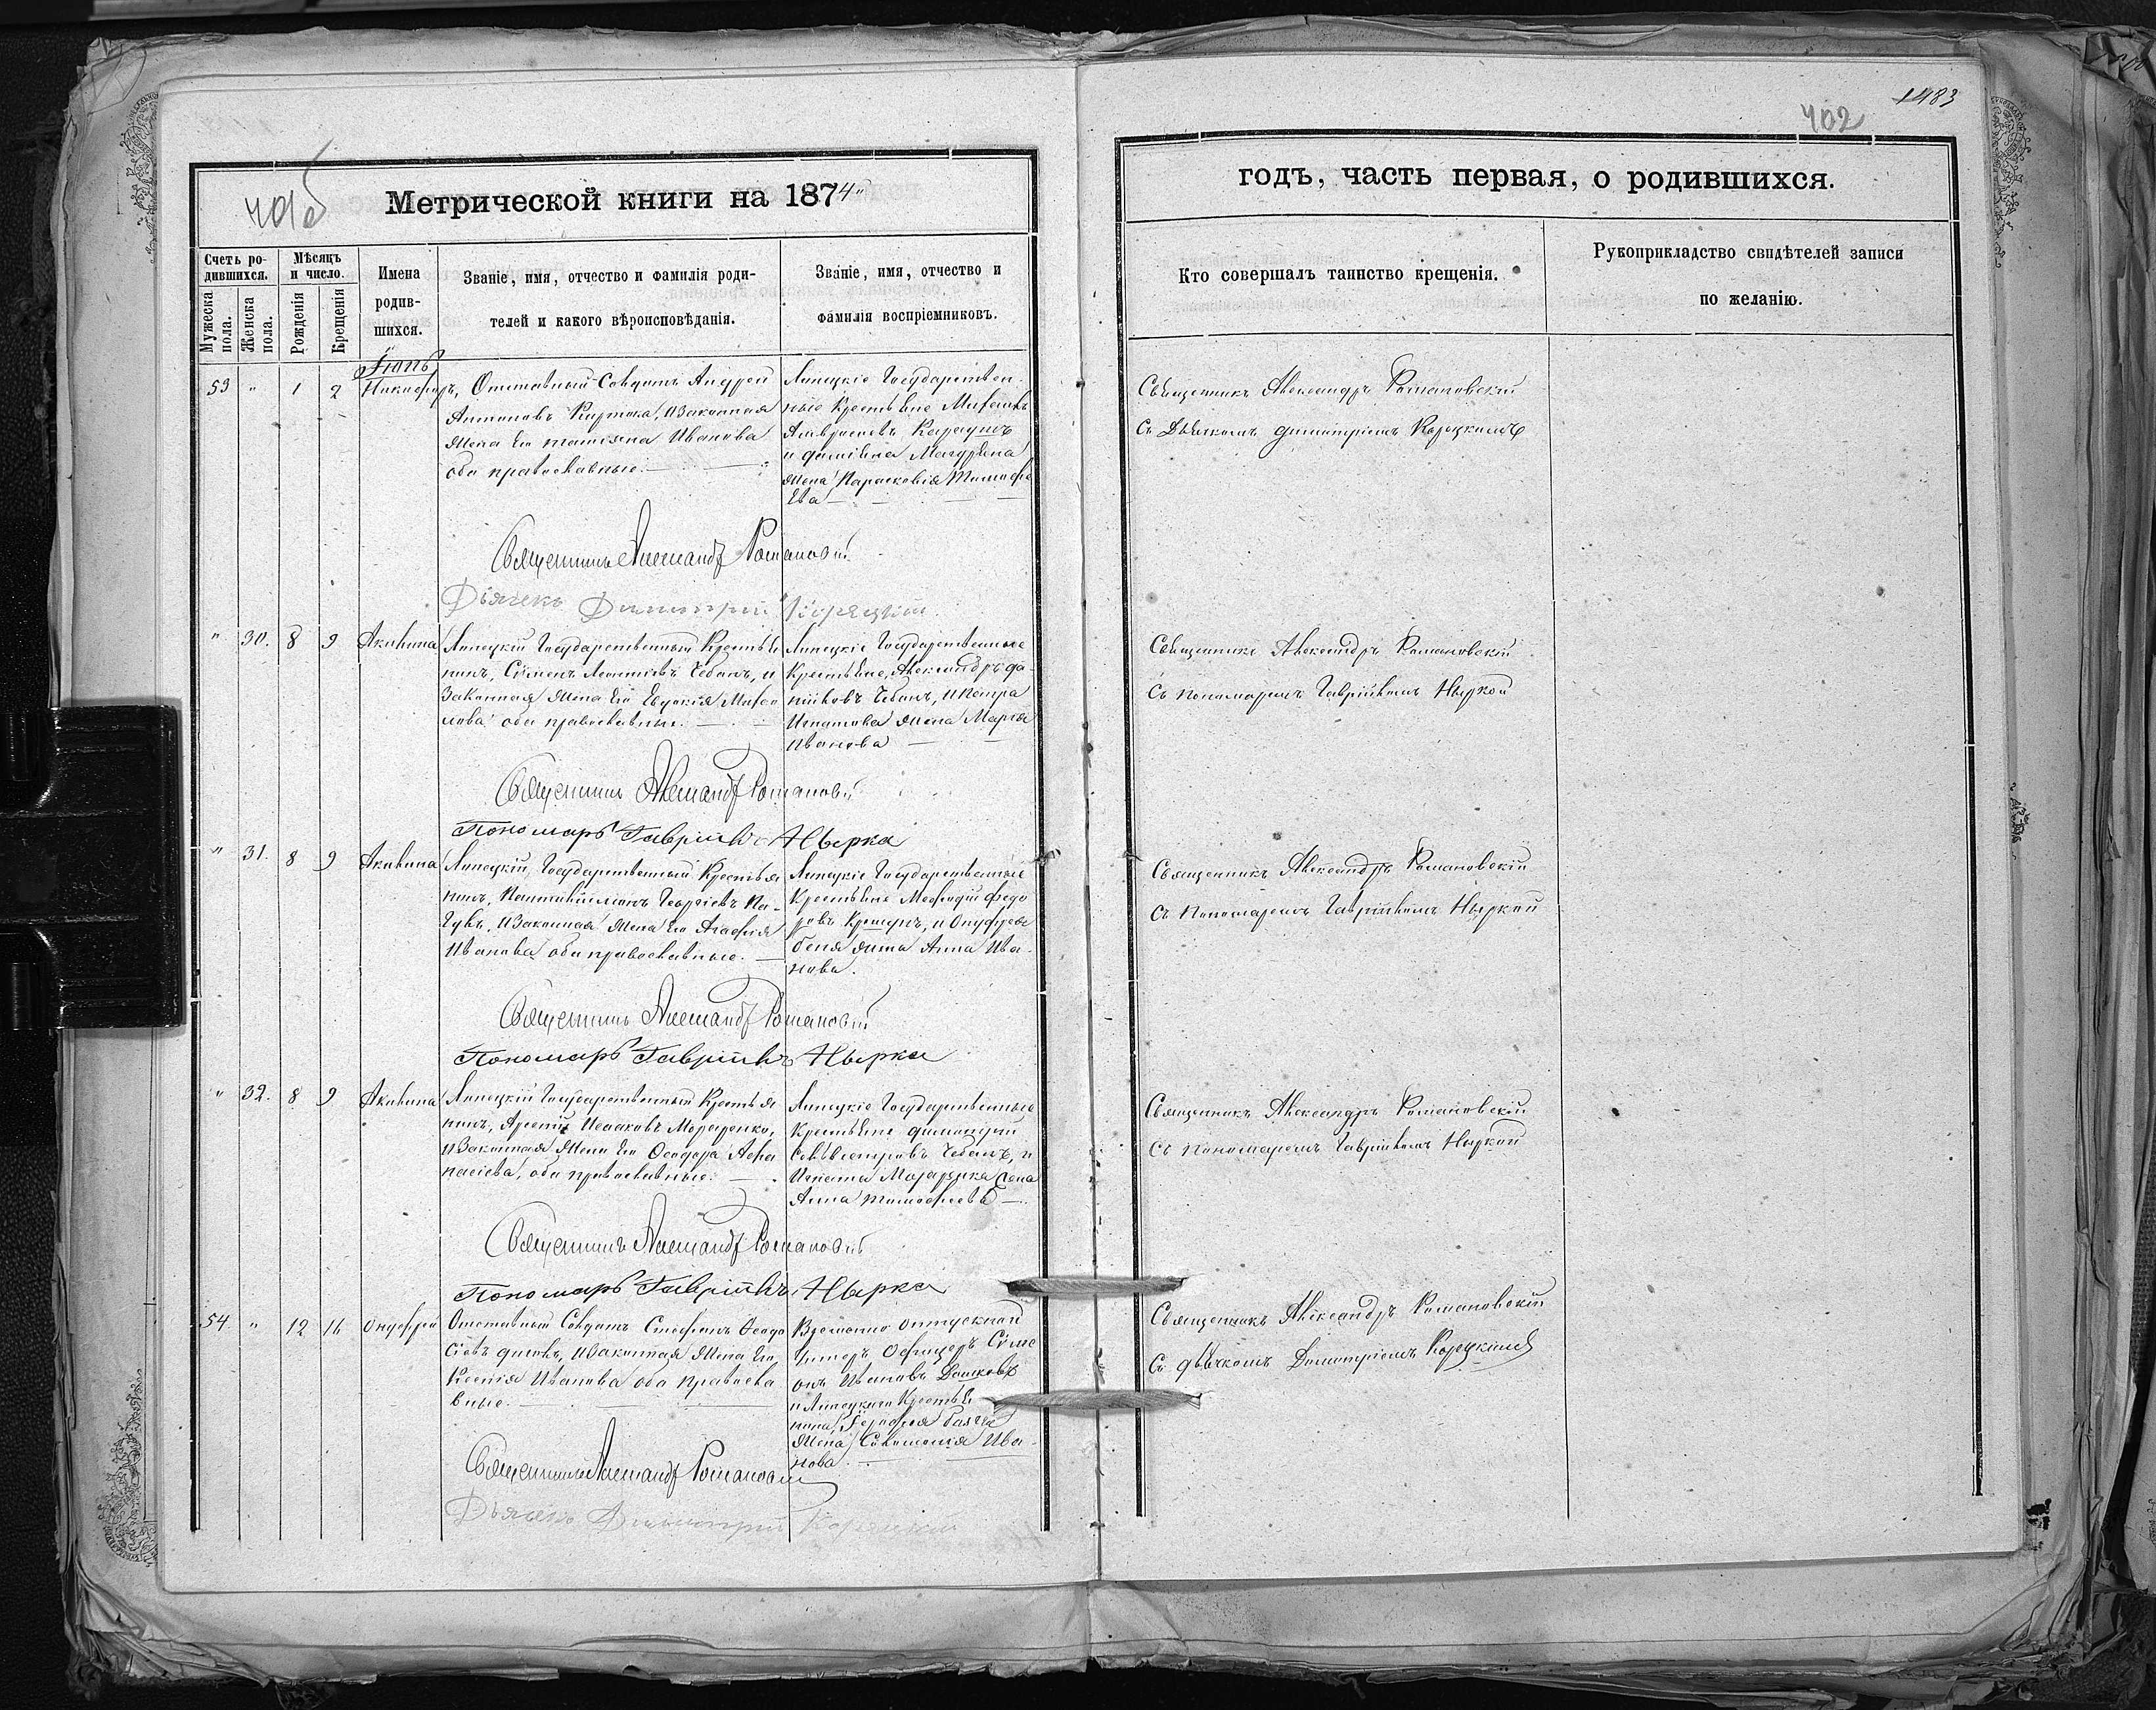 1483
402
401б
Метрической книги на 1874
годъ, часть первая, о родившихся.
Счетъ родившихся.
Мужеска пола.
Женска пола.
Мѣсяцъ и число.
Рожденія
Крещенія
Имена родившихся.
Званіе, имя, отчество и фамилія родителей и какого вѣроисповѣданія.
Званіе, имя, отчество и фамилія воспріемниковъ.
Кто совершалъ таинство крещенія.
Рукоприкладство свидѣтелей записи по желанію.
Іюнь
53 " 1 2 Никифоръ,
Отставный Солдатъ Андрей
Антоновъ и законная
жена Его Иванова
оба православные.
Липецкіе Государствен
ные Крестьяне
и
жена Парасковія Тимофе
Ева
Священникъ Александръ Романовскій
Съ Дьячкомъ Димитріемъ Корецкимъ
Священникъ Александръ Романовскій
Дьячекъ Димитрій Корецкій
" 30. 8 9 Акилина
Липецкій Государственный Крестья
нинъ, Леонтіевъ Чебанъ, и
Законная жена Его Евдокія
оба православные.
Липецкіе Государственные
Крестьяне, Александръ Да
ниловъ Чебанъ, и Петра
Игнатова жена Марія
Иванова
Священникъ Александръ Романовскій
Съ пономаремъ Гавріиломъ Ныркой
Священникъ Александръ Романовскій
Пономарь Гавріилъ Нырка
" 31. 8 9 Акилина
Липецкій, Государственный Крестья
нинъ, Георгіевъ
и Законная жена Его Агафія
Иванова оба православные.
Липецкіе Государственные
Крестьяне Мефодій Федо
ровъ и Онуфрея
жена Анна Ива
нова.
Священникъ Александръ Романовскій
Съ Пономаремъ Гавріиломъ Ныркой
Священникъ Александръ Романовскій
Пономарь Гавріилъ Нырка
" 32. 8 9 Акилина
Липецкій Государственный Крестья
нинъ, Арсеній Исааковъ
и Законная жена Его Феодора Афа
насіева, оба православные.
Липецкіе Государственные
Крестьяне Димитрій
Чебанъ, и
Игната жена
Анна Тимофеева
Священникъ Александръ Романовскій
Съ Пономаремъ Гавріиломъ Ныркой
Священникъ Александръ Романовскій
Пономарь Гавріилъ Нырка
54. " 12 16 Онуфрій
Отставный Солдатъ Стефанъ Феодо
сіевъ и законная жена Его
Ксенія Иванова оба православ
вные.
Временно отпускной
Унтеръ Офицеръ Симе
онъ Ивановъ
и Липецкаго Крестья
нина
жена Соломонія Ива
нова.
Священникъ Александръ Романовскій
Съ дьячкомъ Димитріемъ Корецкимъ
Священникъ Александръ Романовскій
Дьячекъ Димитрій Корецкій